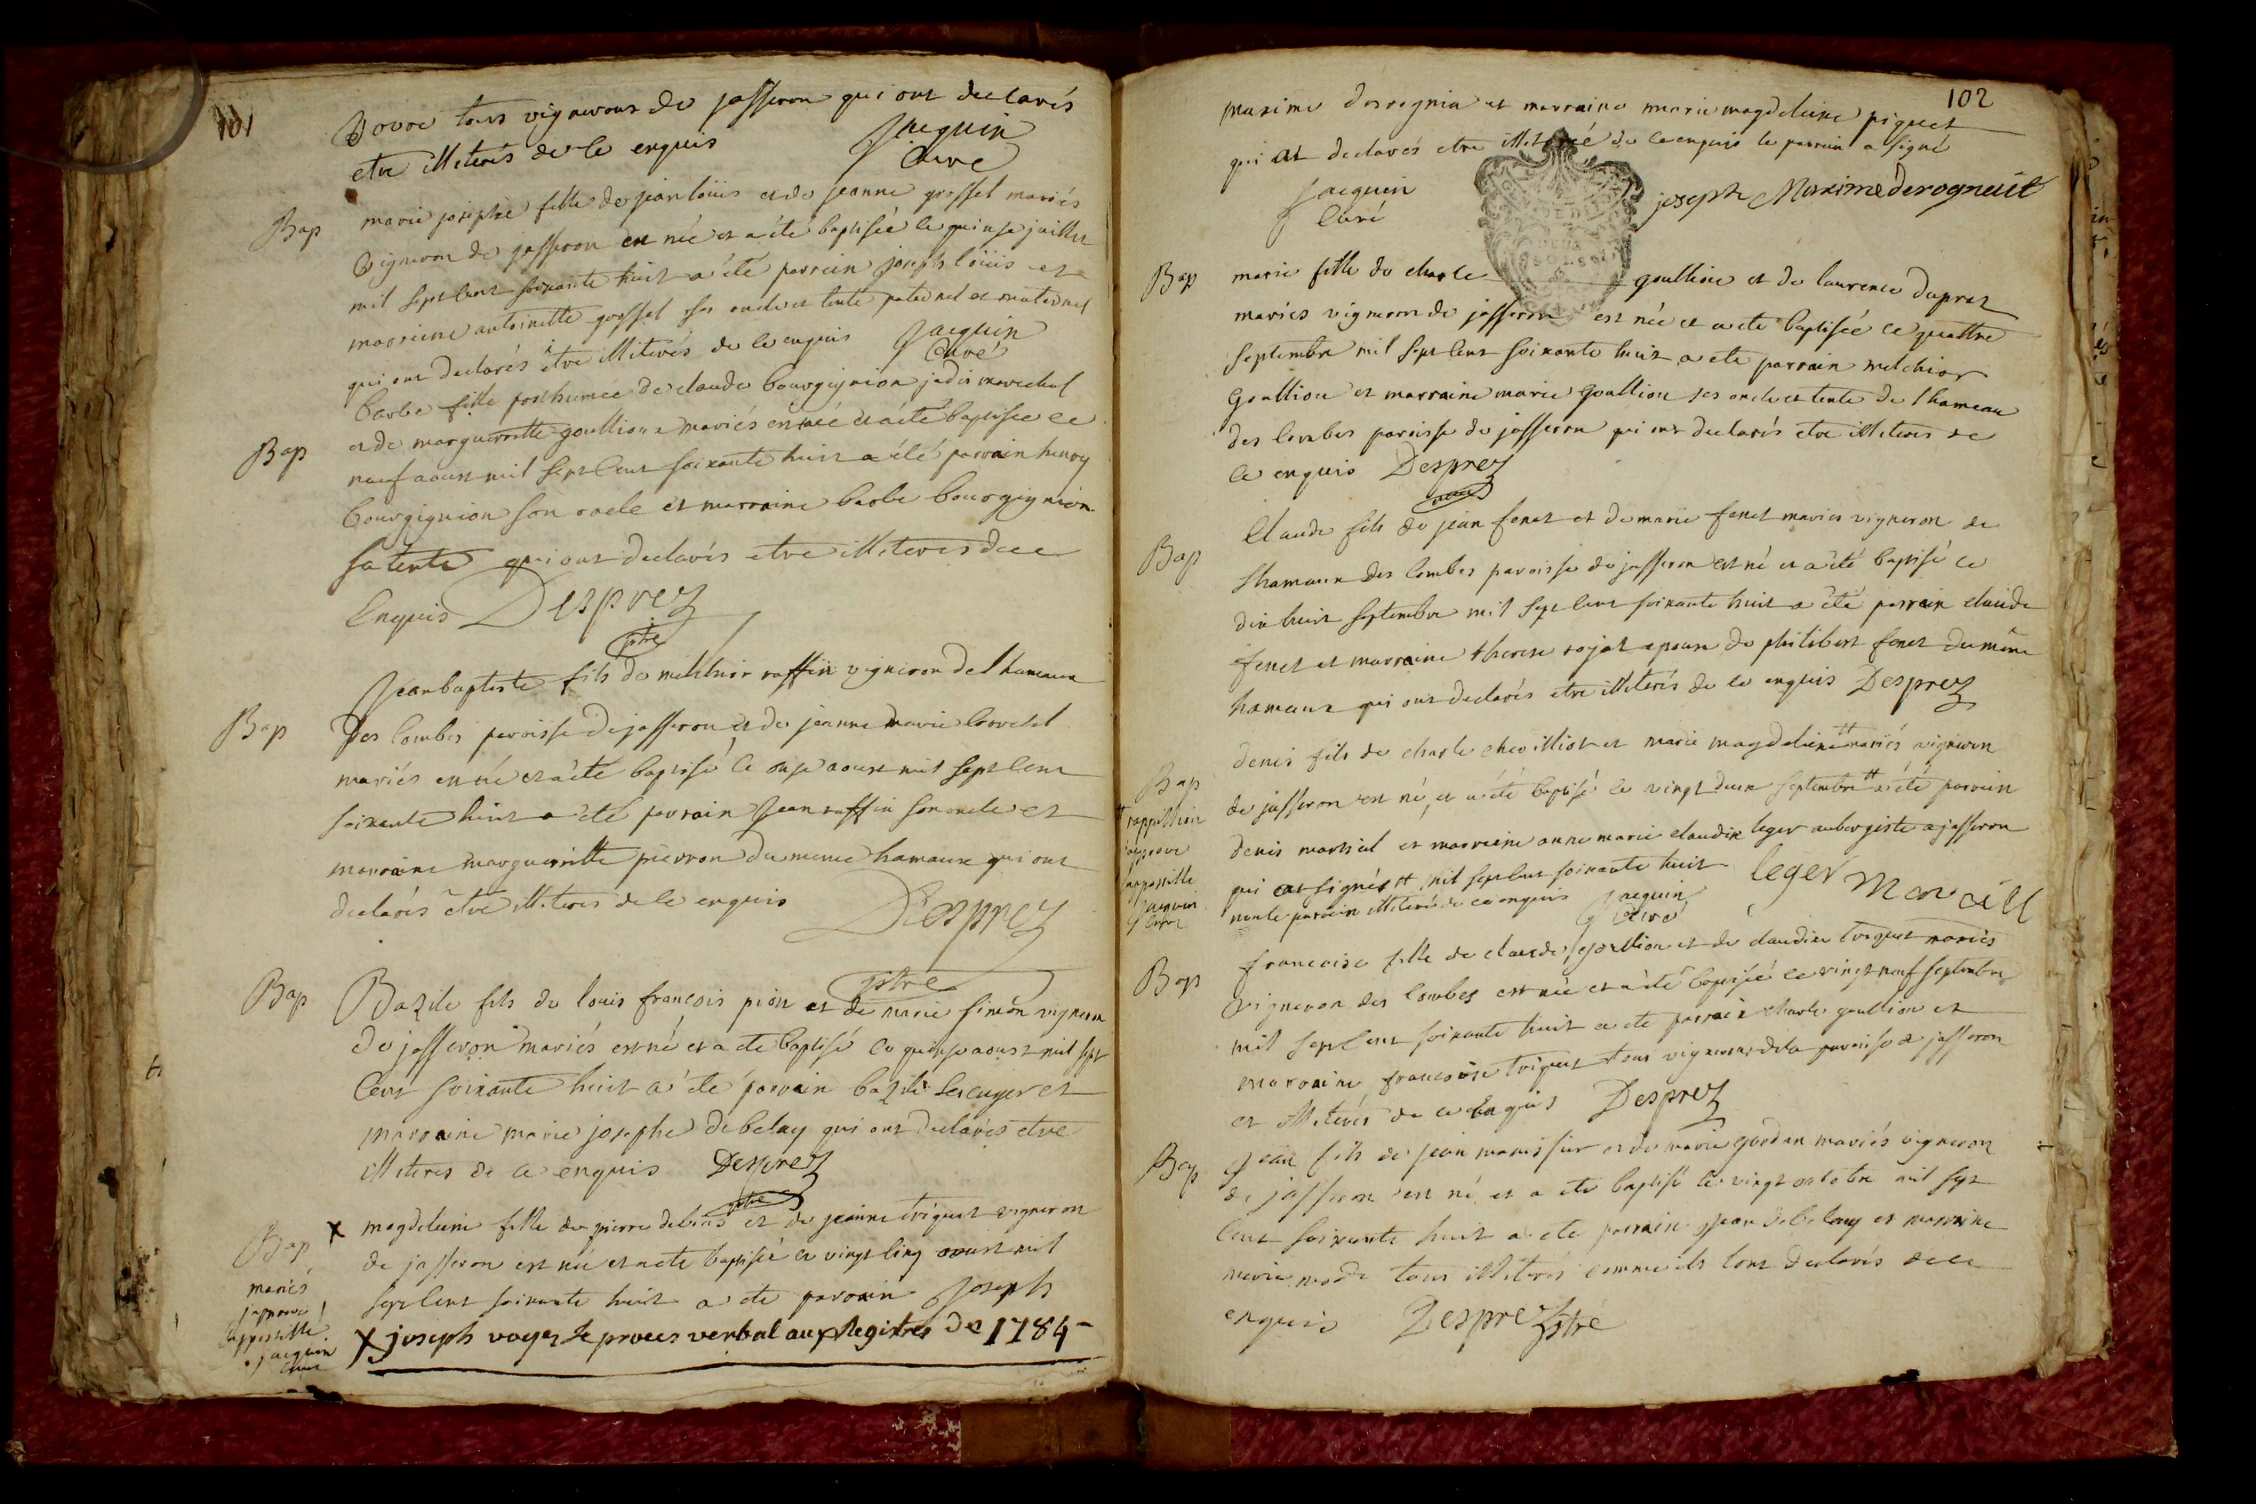 101
Bovoe tous vignerons de jasseron qui ont declarés
etre illiterés de ce enquis Jacquin
Curé
Bap
marie josephe fille de jean loüis et de jeanne gossel mariés
Vigneron de jasseron est née et a été baptisée le quinse juillet
mil sept cent soixante huit a été parrain joseph loüis et
marraine antoinette gossel ses oncle et tente paternel et maternel
qui ont declarés être illiterés de ce enquis Jacquin
Curé
Bap
barbe fille posthumée de claude bourgignion jadis marechal
et de marguerritte goultion mariés est née et a été baptisée le
neuf aoust mil sept cent soixante huit a été parrain henry
bourgignion son oncle et marraine barbe bourgignion
sa tente qui ont declarés etre illiterés de ce
enquis Desprez
ptre
Bap
Jean baptiste fils de melchior ruffin vigneron de lhameaux
Des Combes paroisse de jasseron et de jeanne marie
mariés est né et a été baptisé le onse aoust mil sept cent
soixante huit a été parrain jean ruffin son oncle et
marraine marguerritte pierron du meme hameaux qui ont
declarés être illiterés de ce enquis Desprez
ptre
Bap
Bazile fils de louis françois pion et de marie siméon vigneron
de jasseron mariés est né et a ete baptisé le quinse aoust mil sept
cent soixante huit a été parrain bazile lescuyer et
marraine marie josephe debelay qui ont declarés etre
illiterés de ce enquis Desprez
ptre
Bap
x magdeleine fille de pierre et de jeanne triquet vigneron
de jasseron est née et a ete baptisée le vingt cinq aoust mil
sept cent soixante huit a ete parrain joseph
mariés
japrouve
lappostille
jacquin
curé
X joseph voyez le proces verbal aux Registres de 1784
102
maxime derognia et marraine marie magdeleine piquet
qui at declarés etre illiteré de ce enquis le parrain a signé
Jacquin
Curé
joseph Maxime derogneüt
Bap
marie fille de charle goultion et de laurence duprez
mariés vigneron de jasseron est née et a ete baptisée le quattre
septembre mil sept cent soixante huit a ete parrain melchior
goultion et marraine marie goultion ses oncle et tente de lhameau
des Combes paroisse de jasseron qui ont declarés etre illiterés de
ce enquis Desprez
Bap
Claude fils de jean fenet et de marie fenet mariés vigneron de
lhameau des Combes paroisse de jasseron est né et a été baptisé le
dix huit septembre mil sept cent soixante huit a été parrain claude
fenet et marraine therese rojat epouse de philibert fenet du même
hameaux qui ont declarés etre illiterés de ce enquis Desprez
Bap
denis fils de charle chevilliot et marie magdeleine # mariés vigneron
de jasseron est né et a été baptisé le vingt deux septembre # a été parrain
denis martial et marraine anne marie claudine leger aubergiste a jasseron
qui ont signés # mil sept cent soixante huit leger
non le parrain illiteré de ce enquis Jacquin
Curé
lappostille
Jacquin
Curé
Bap
francoise fille de claude goultion et de claudine triquet mariés
vigneron des Combes est née et a été baptisée le vingt neuf septembre
mil sept cent soixante huit a ete parrain charle goultion et
marraine francoise triquet tous vignerons de la paroisse de jasseron
et illiterés de ce enquis Desprez
Bap
Jean fils de jean et de marie gordan mariés vigneron
de jasseron est né et a ete baptisé le vingt octobre mil sept
cent soixante huit a ete parrain jean debelay et marraine
marie tous illiterés comme ils lont declarés de ce
enquis Desprez ptre